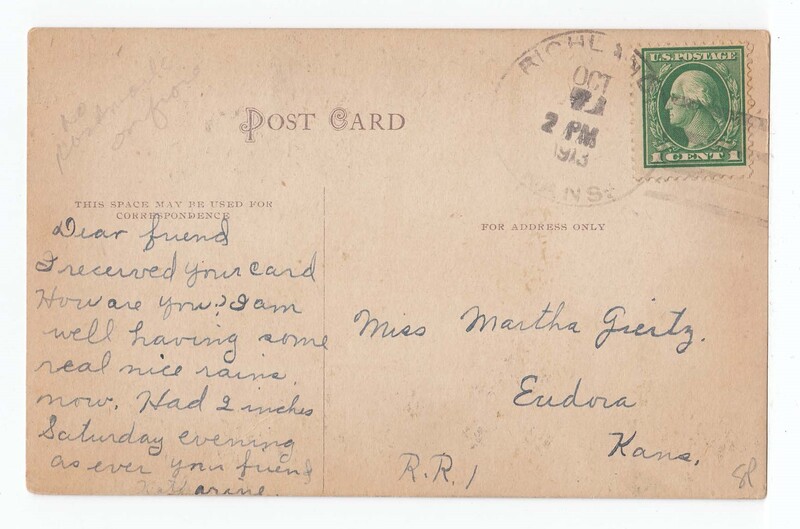 no
postmarks
on front
POST CARD
RICHLAND
OCT
2 PM
1913
KANS.
U.S. POSTAGE
1 CENT 1
THIS SPACE MAY BE USED FOR
CORRESPONDENCE
FOR ADDRESS ONLY
Dear friend
I received your card
How are you? I am
well having some
real nice rains
now. Had 2 inches
Saturday evening
as ever your friend
Katharine.
Miss Martha Giertz.
Eudora
Kans.
R.R. 1